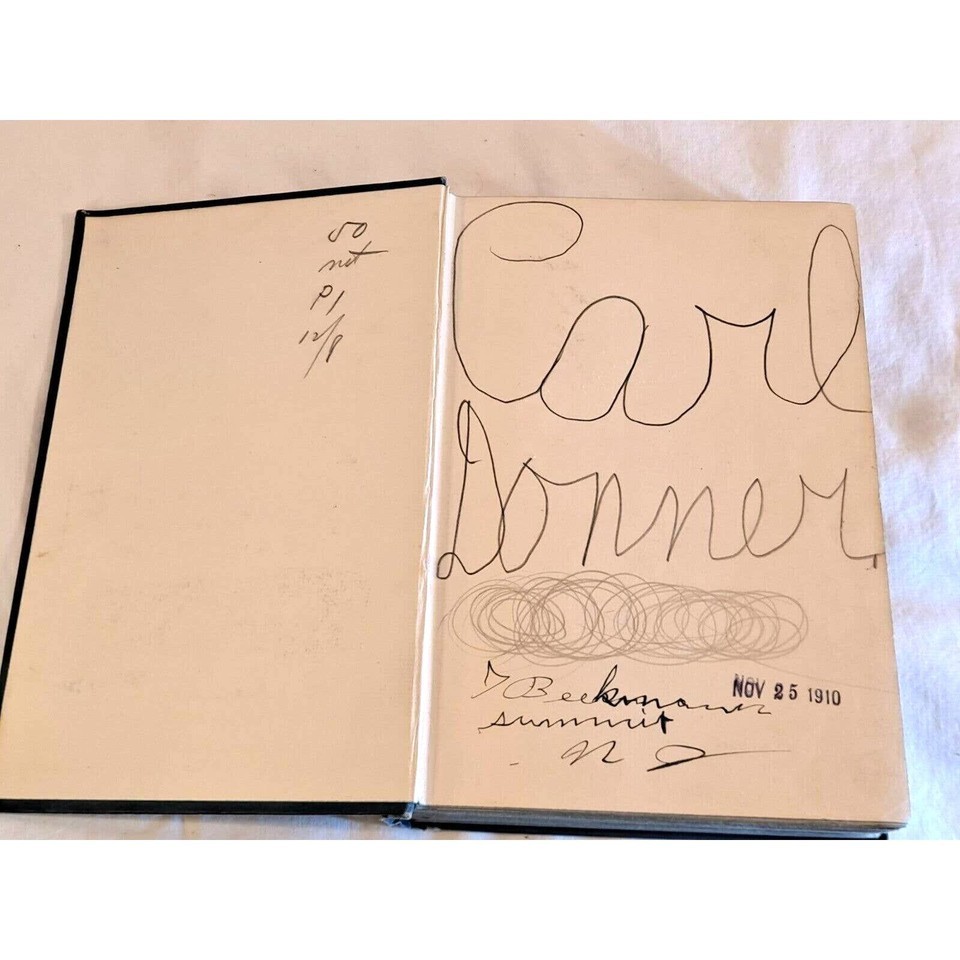 50
net
P1
12/8
Carl
Donner
Beekmann
NOV 25 1910
summit
N J